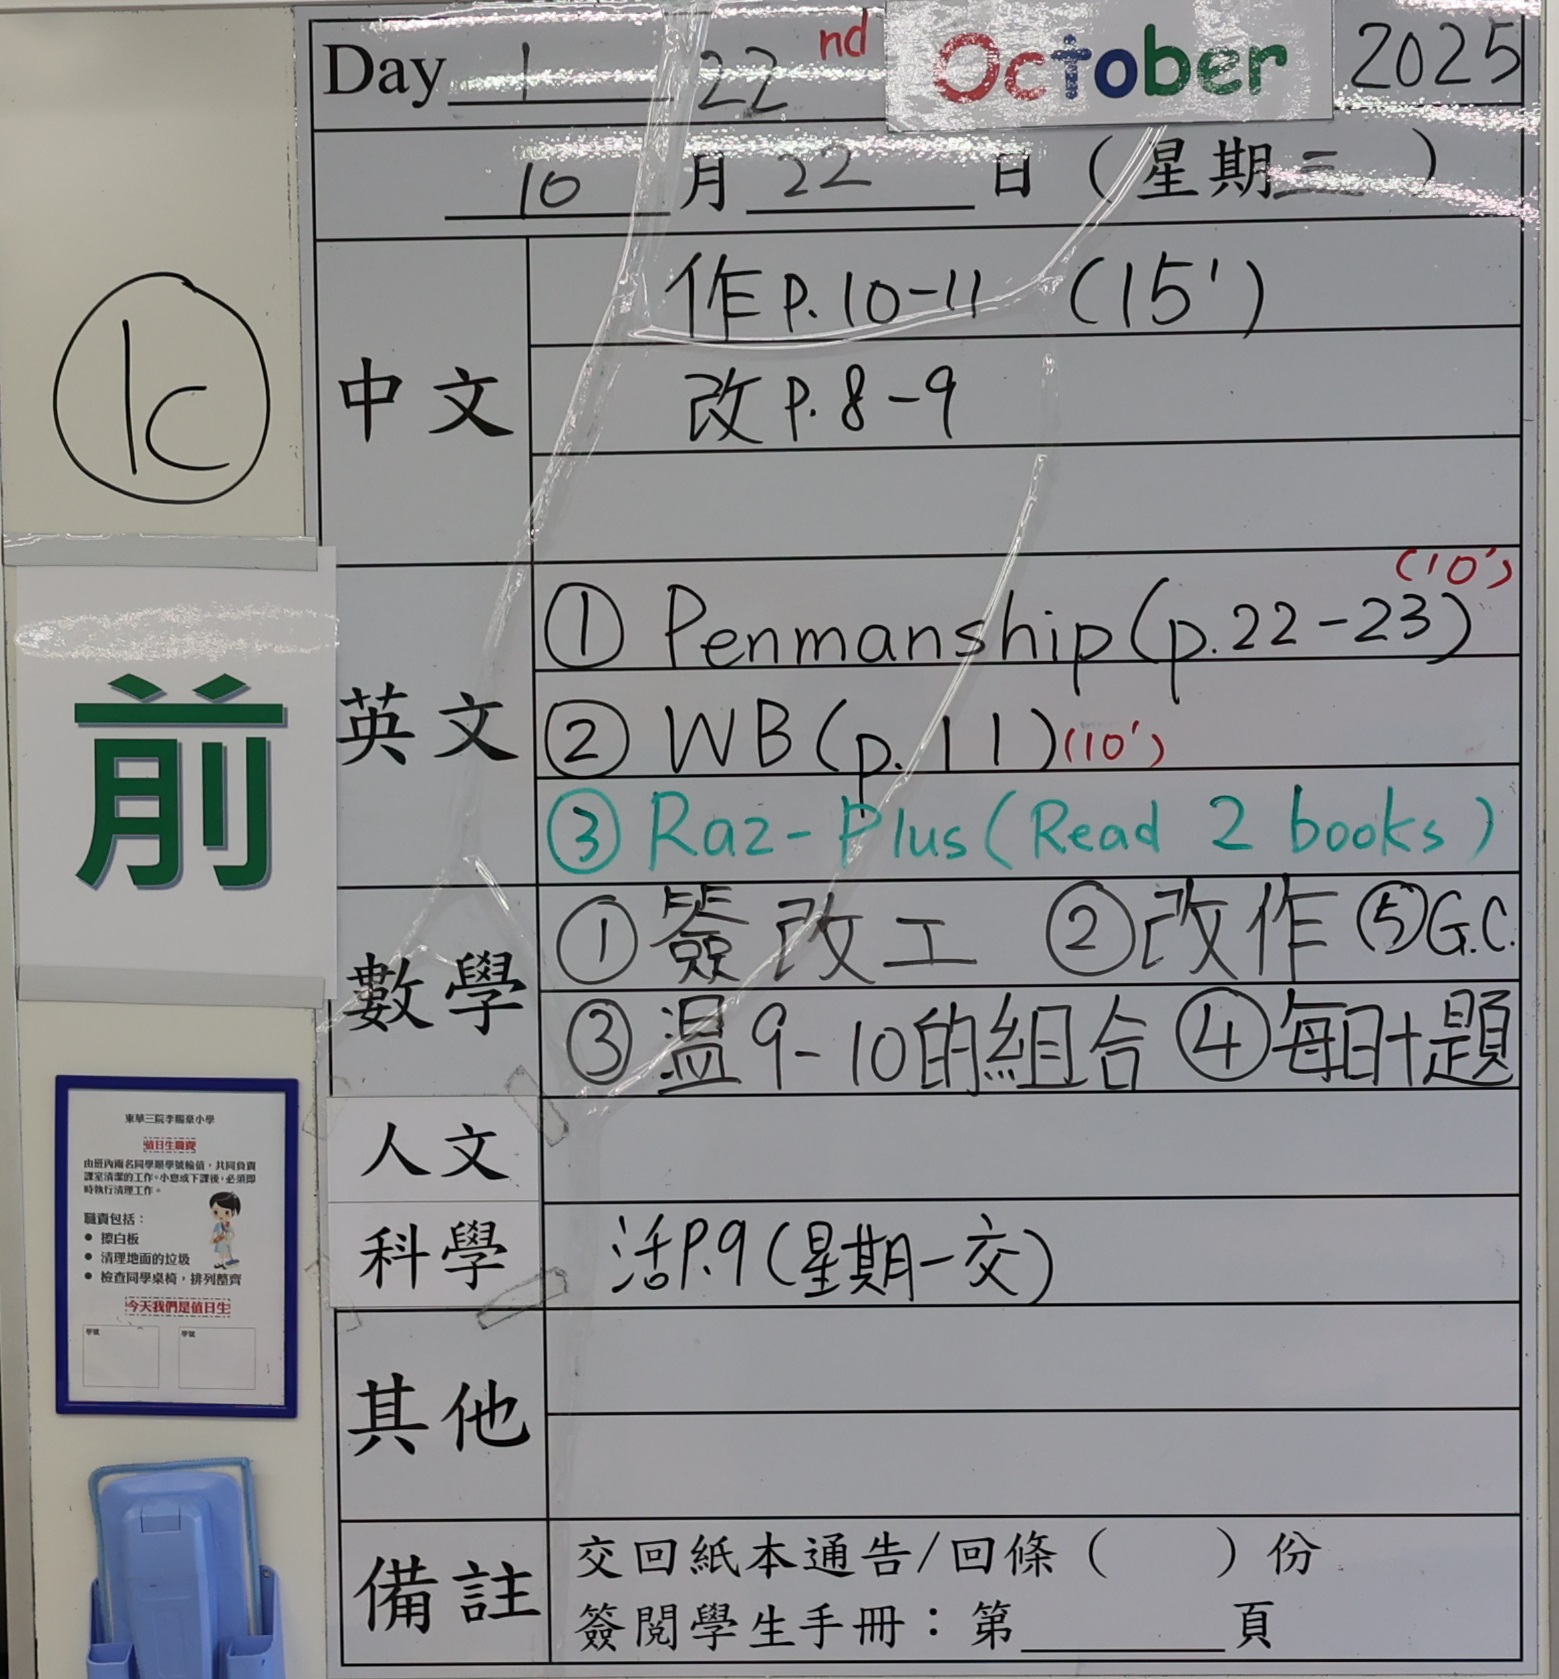 Day 1 22nd October 2025
10月22日（星期三）
1C
中文
作P.10-11 (15')
改P.8-9
英文
(10')
① Penmanship (p.22-23)
② WB (p.11) (10')
③ Raz-Plus (Read 2 books)
前
數學
① 簽改工 ② 改作 ⑤ G.C.
③ 溫9-10的組合 ④ 每日十題
人文
科學
活P.9 (星期一交)
其他
備註
交回紙本通告/回條（ ）份
簽閱學生手冊：第____頁
東華三院李賜豪小學
值日生職責
由班內兩名同學順學號輪值，共同負責
課室清潔的工作。小息或下課後，必須即
時執行清理工作。
職責包括：
● 擦白板
● 清理地面的垃圾
● 檢查同學桌椅，排列整齊
今天我們是值日生
學號 學號